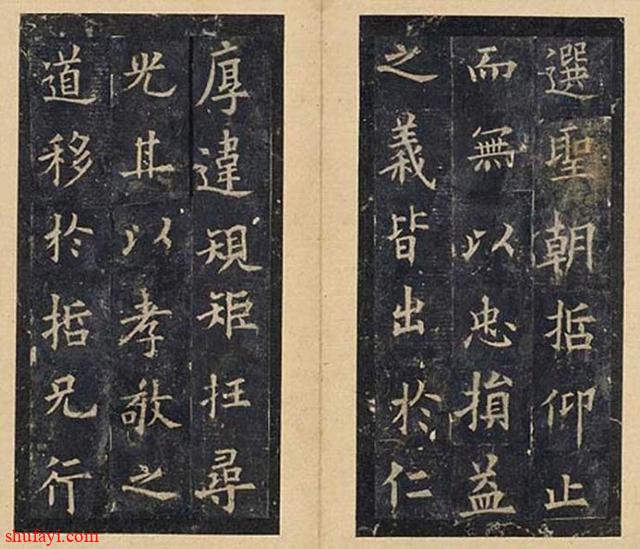 選聖朝哲仰止
而無以忠損益
之義皆出於仁
厚違規矩抂尋
光其以孝敬之
道移於哲兄行
shufayi.com